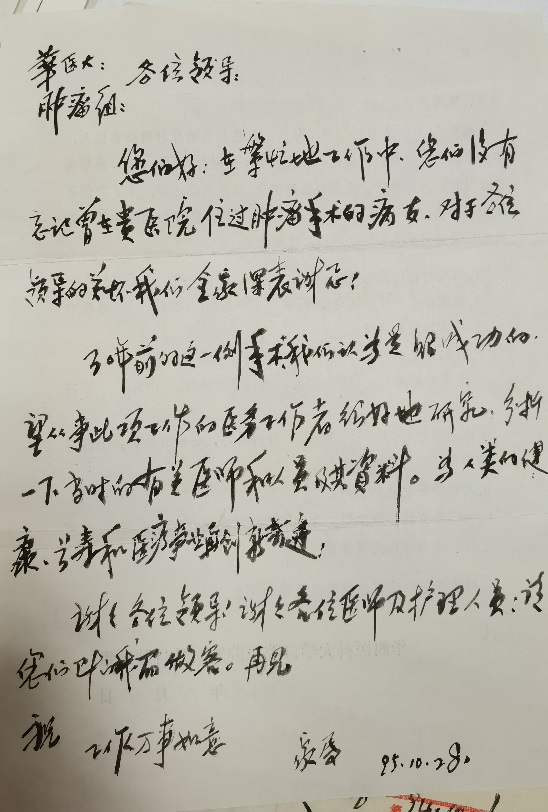 華医大：
肿瘤组： 各位领导：
您们好：在繁忙地工作中，您们没有
忘记曾在贵医院住过肿瘤手术的病友，对于各位
领导的关怀我们全家深表谢意！
30年前的这一例手术我们认为是很成功的，
望从事此项工作的医务工作者很好地研究，分析
一下当时的有关医师和人员及其資料。为人类的健
康、长寿和医疗事业再创新
谢谢各位领导！谢谢各位医师及护理人员；请
您们来做客。再见
祝 工作万事如意
95.10.28.